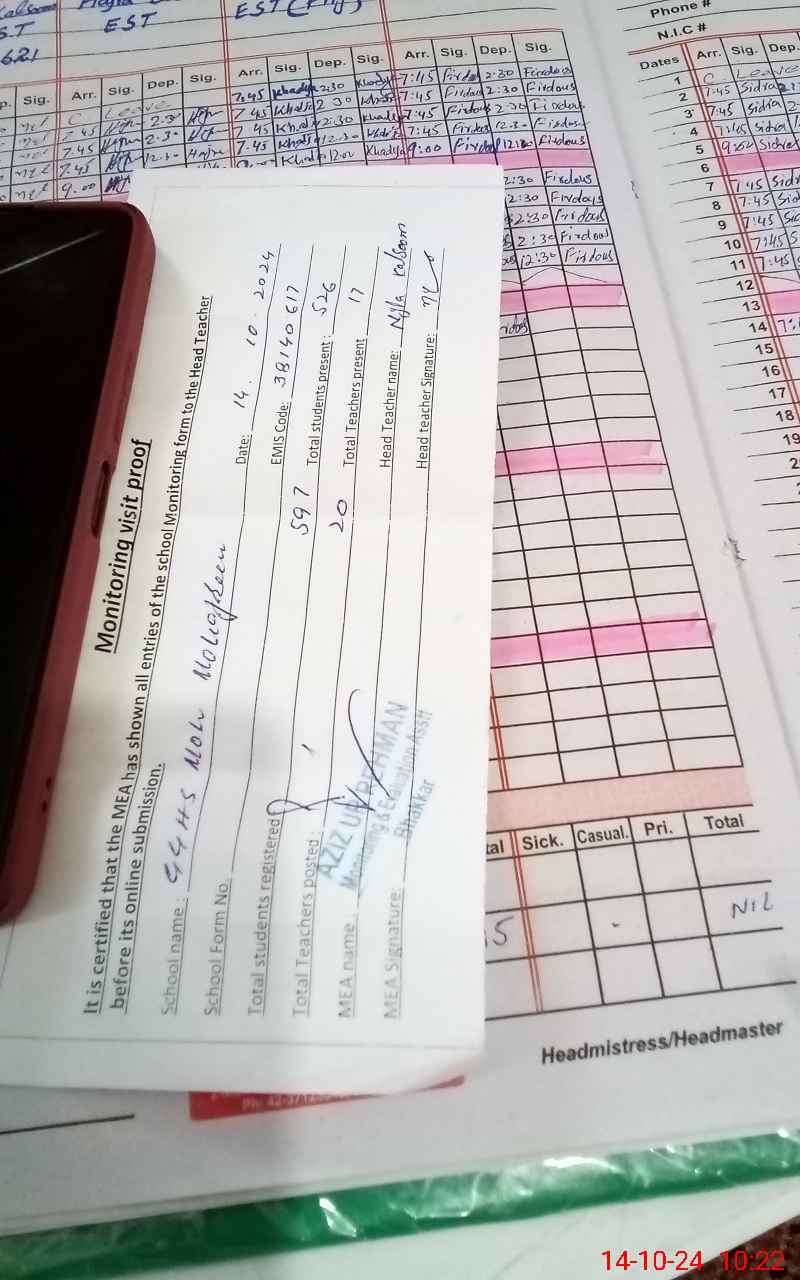 Monitoring visit proof
It is certified that the MEA has shown all entries of the school Monitoring form to the Head Teacher
before its online submission.
School name: GGHS Date: 14. 10. 2024
School Form No. EMIS Code: 38140617
Total students registered 597 Total students present: 526
Total Teachers posted: 20 Total Teachers present 17
MEA name: Head Teacher name: Nyla Kalsoom
MEA Signature: Head teacher Signature:
AZIZ UR REHMAN
Monitoring & Evaluation Asstt
Bhakkar
EST
EST
621
Sig. Arr. Sig. Dep. Sig. Arr. Sig. Dep. Sig. Arr. Sig. Dep. Sig.
C. Leave 7:45 Khadija 2:30 Khadija 7:45 Firdous 2:30 Firdous
7:45 2:30 7:45 Khadija 2:30 Khadija 7:45 Firdous 2:30 Firdous
7:45 2:30 7:45 Khadija 2:30 Khadija 7:45 Firdous 2:30 Firdous
7:45 12:30 7:45 Khadija 12:30 Khadija 7:45 Firdous 12:30 Firdous
9:00 Khadija 12:00 Khadija 9:00 Firdous 12:00 Firdous
2:30 Firdous
2:30 Firdous
2:30 Firdous
2:30 Firdous
12:30 Firdous
Phone #
N.I.C #
Dates Arr. Sig. Dep.
1 C. Leave
2 7:45 Sidra
3 7:45 Sidra
4 7:45 Sidra
5 9:00 Sidra
6
7 7:45 Sid
8 7:45 Sid
9 7:45
10 7:45
11 7:45
12
13
14
15
16
17
18
19
Sick. Casual. Pri. Total
15 - NIL
Headmistress/Headmaster
14-10-24 10:22